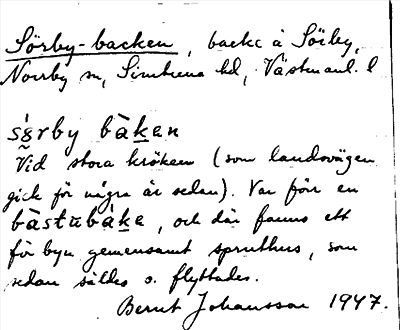 Sörby-backen, backe å Sörby,
Norrby sn, Simtuna hd, Västmanl. l
sǿrby bàken
Vid stora kröken (som landsvägen
gick för några år sedan). Var förr en
bàstubàke, och där fanns ett
för byn gemensamt spruthus, som
sedan såldes o. flyttades.
Bernt Johansson 1947.